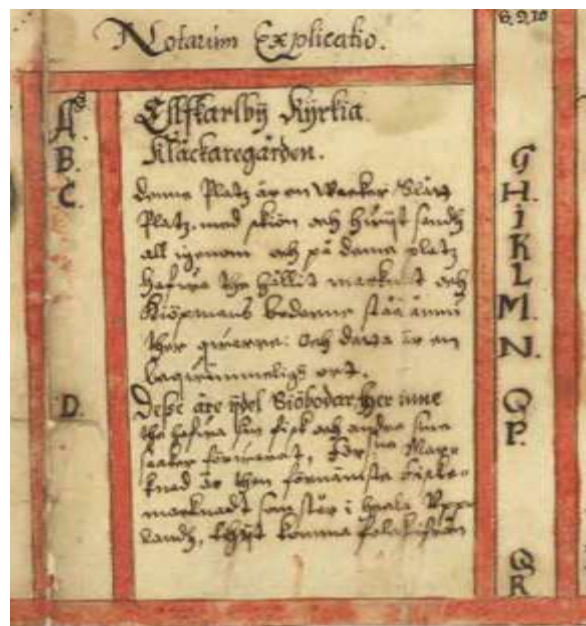 Notarum Explicatio.
8, 9, 10
A. Ellfkarlbÿ Kÿrkia.
B. Kläckaregården.
C. Denne Platz är en wacker Slätt
Platz, med skiön och hwijt sandh
all igenom och på denne platz
hafwa the hållit marknat och
Kiöpmans boderne ståå ännu
ther qwarre: och detta är en
beqwämmeligh ort.
D. Desse äre ÿdel Siöbodar, her inne
the hafwa sin fisk och andra sina
saaker förwarat, Mark-
nad är then förnämsta fiske-
marknadt som står i heela Upp-
landh, tÿt komma folck ifrån
G
H.
I
K
L
M.
N.
O
P.
Q
R